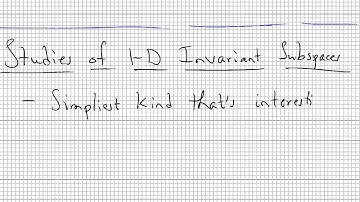 Studies of 1-D Invariant Subspaces
- Simpliest kind that's interesti